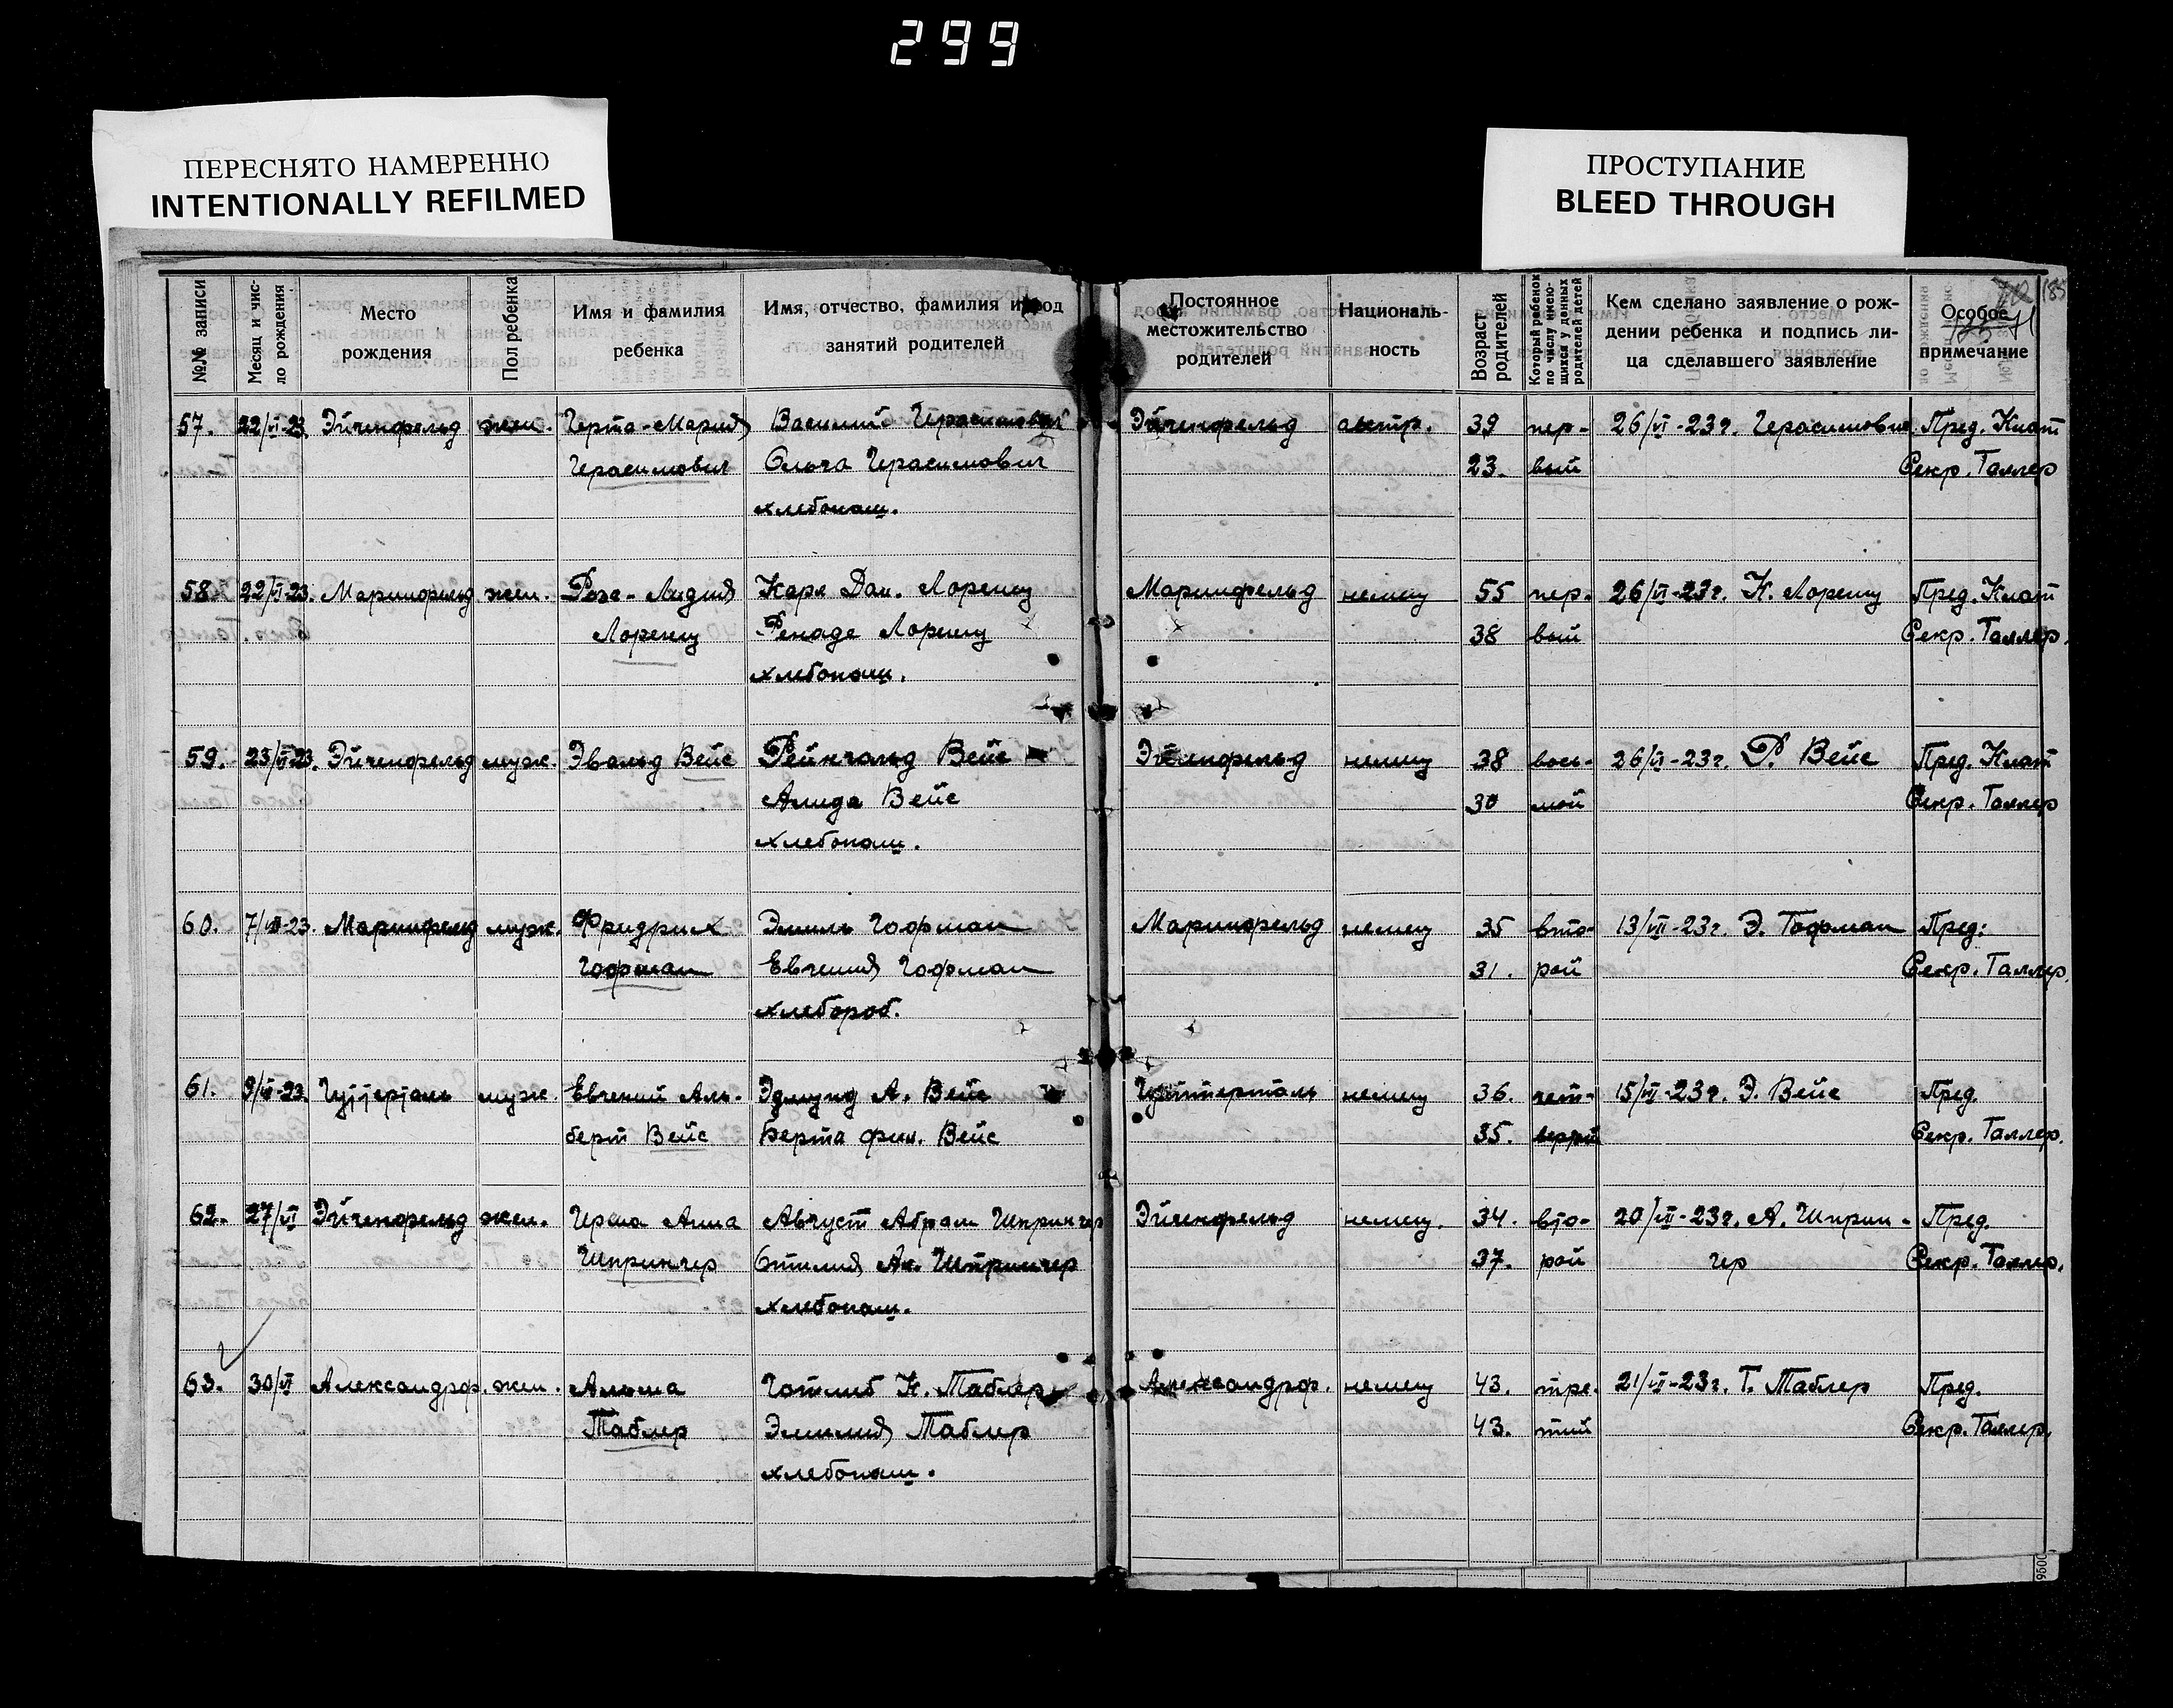 299
ПЕРЕСНЯТО НАМЕРЕННО
INTENTIONALLY REFILMED
ПРОСТУПАНИЕ
BLEED THROUGH
185
71
№№ записи
Месяц и чис-
ло рождения
Место
рождения
Пол ребенка
Имя и фамилия
ребенка
Имя, отчество, фамилия и род
занятий родителей
Постоянное
местожительство
родителей
Националь-
ность
Возраст
родителей
Который ребенок
по числу имею-
щихся у данных
родителей детей
Кем сделано заявление о рож-
дении ребенка и подпись ли-
ца сделавшего заявление
Особое
примечание
57. 22/VI-23. Эйгенфельд жен. Герта-Мария Василий Герасимович Эйгенфельд австр. 39 пер- 26/VI-23г. Герасимович Пред. Клат
Герасимович Ольга Герасимович 23. вый Секр. Таллер
хлебопаш.
58. 22/VI-23. Мариифельд жен. Роза-Лидия Карл Дан. Лоренц Мариифельд немец 55 пер- 26/VI-23г. К. Лоренц Пред. Клат
Лоренц Ренаде Лоренц 38 вый Секр. Таллер.
хлебопаш.
59. 23/VI-23. Эйгенфельд муж. Эвальд Вейс Рейнгольд Вейс Эйгенфельд немец 38 вось- 26/VI-23г. Р. Вейс Пред. Клат
Алида Вейс 30 мой Секр. Таллер
хлебопаш.
60. 7/VII-23. Мариифельд муж. Фридрих Эмиль Гофман Мариифельд немец 35 вто- 13/VII-23г. Э. Гофман Пред:
Гофман Евгения Гофман 31. рой Секр. Таллер.
хлебороб.
61. муж. Евгений Аль- Эдмунд А. Вейс Гуттерталь немец 36. чет- 15/VII-23г. Э. Вейс Пред.
берт Вейс Берта фил. Вейс 35. вертый Секр. Таллер.
62. 27/VI Эйгенфельд жен. Ирма Анна Август Абрам Шпрингер Эйгенфельд немец. 34. вто- 20/VII-23г. А. Шприн- Пред.
Шпрингер Отилия Ан. Шпрингер 37. рой гер Секр. Таллер.
хлебопаш.
63. 30/VI Александроф. жен. Альма Готлиб К. Таблер Александроф. немец 43. тре- 21/VII-23г. Г. Таблер Пред.
Таблер Эмилия Таблер 43. тий Секр. Таллер.
хлебопаш.